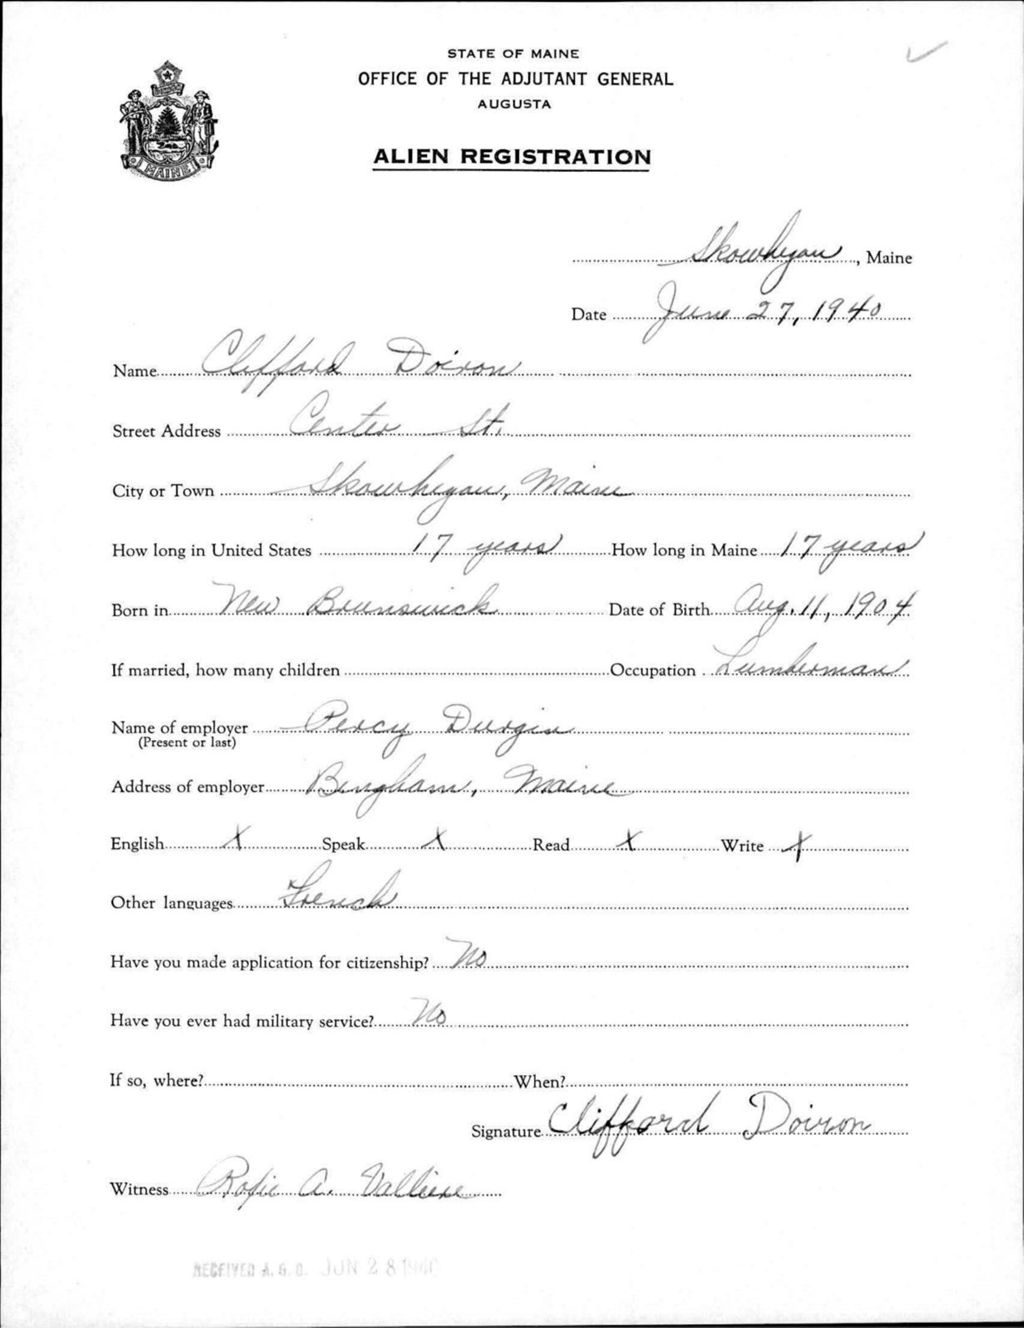 STATE OF MAINE
OFFICE OF THE ADJUTANT GENERAL
AUGUSTA
ALIEN REGISTRATION
MAINE
Skowhegan, Maine
Date June 27, 1940
Name Clifford Doiron
Street Address Center St.
City or Town Skowhegan, Maine
How long in United States 17 years How long in Maine 17 years
Born in New Brunswick Date of Birth Aug. 11, 1904
If married, how many children Occupation Lumberman
Name of employer Percy Durgin
(Present or last)
Address of employer Bingham, Maine
English X Speak X Read X Write X
Other languages French
Have you made application for citizenship? No
Have you ever had military service? No
If so, where? When?
Signature Clifford Doiron
Witness A. Valliere
RECEIVED A. G. O. JUN 28 1940